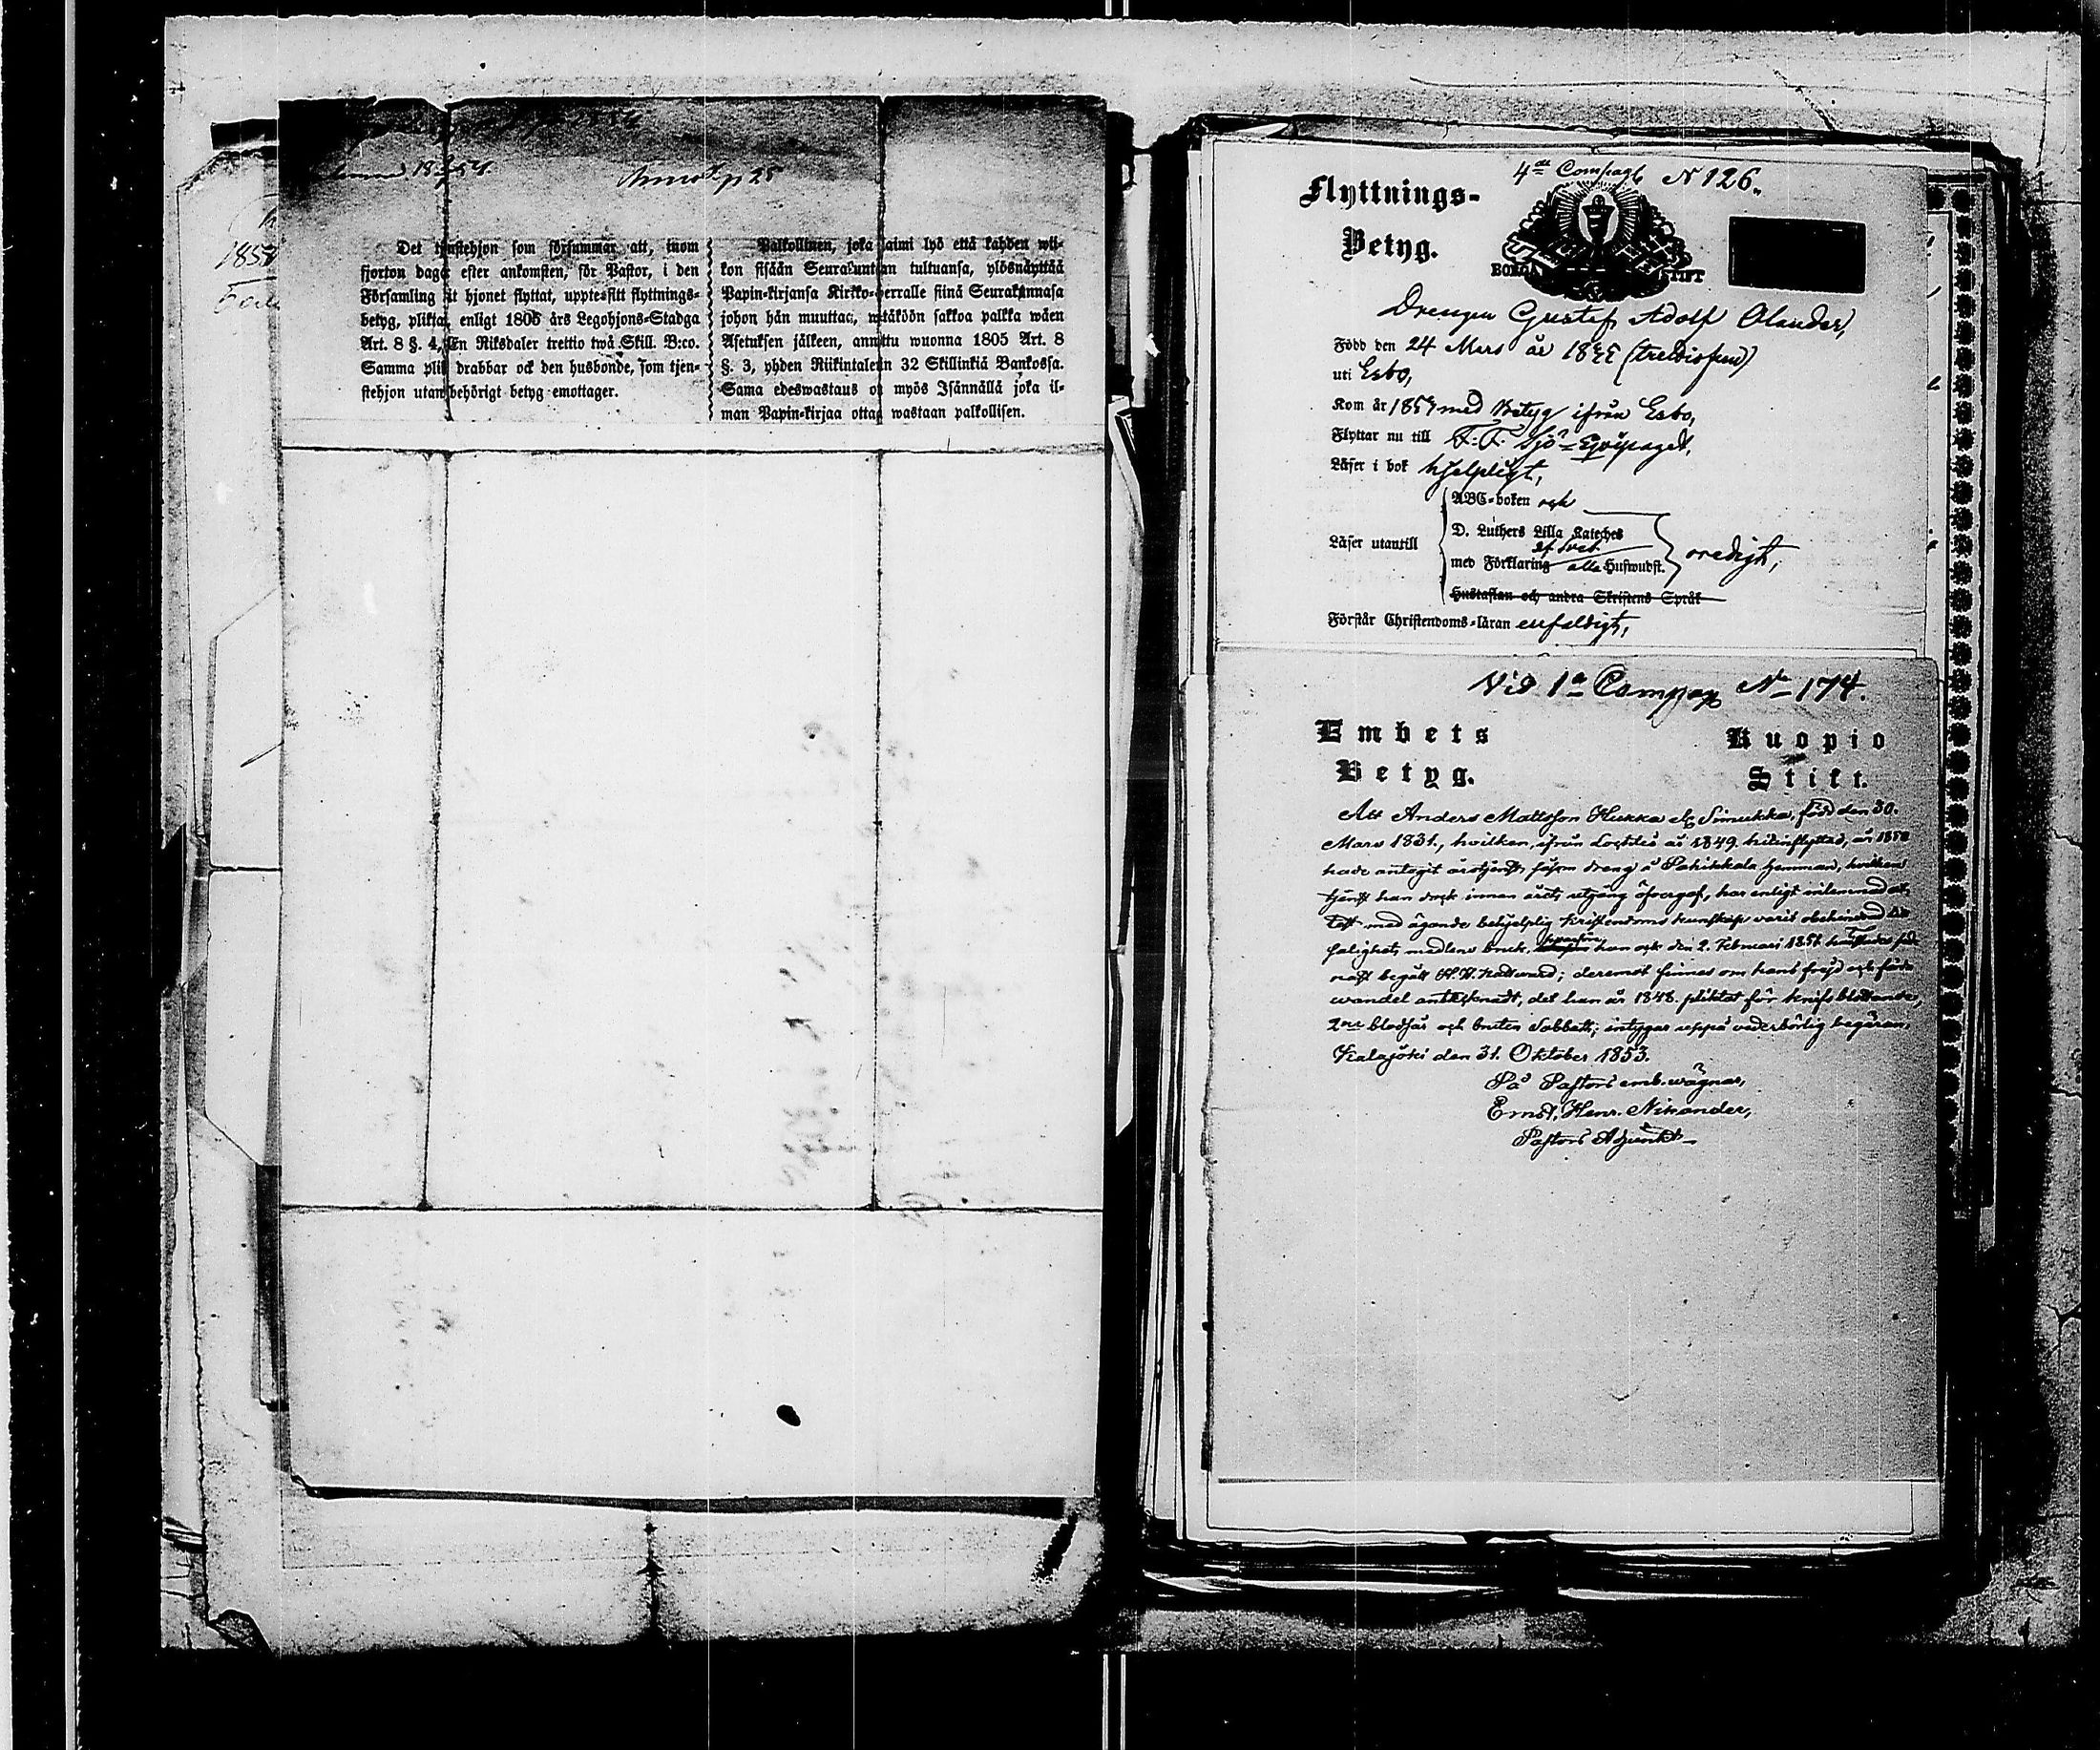 1854.
Annot. p 25
Det tjenstehjon som försummar att, inom
fjorton dagar efter ankomsten, för Pastor, i den
Församling dit hjonet flyttat, uppte sitt flyttnings-
betyg, plikta, enligt 1805 års Legohjons-Stadga
Art. 8 §. 4, En Riksdaler trettio twå Skill. B:co.
Samma plikt drabbar ock den husbonde, som tjen-
stehjon utan behörigt betyg emottager.
Palkollinen, joka laimi lyö että kahden wii-
kon sisään Seurakuntaan tultuansa, ylösnäyttää
Papin-kirjansa Kirkko-herralle siinä Seurakunnasa
johon hän muuttaa, wetäköön sakkoa palkka wäen
Asetuksen jälkeen, annettu wuonna 1805 Art. 8
§. 3, yhden Riikintalerin 32 Skillinkiä Bankossa.
Sama edeswastaus on myös Isännällä joka il-
man Papin-kirjaa ottaa wastaan palkollisen.
1858
4de Compag N 126.
Flyttnings-
Betyg.
BORGÅ STIFT
Drengen Gustaf Adolf Olander,
Född den 24 Mars år 18
uti Esbo,
Kom år 185 med Betyg ifrån Esbo,
Flyttar nu till F. F. Sjö-Equipaget,
Läser i bok hjelpligt,
ABC-boken och
D. Luthers Lilla Kateches
Läser utantill oredigt,
med Förklaring alla Huswudst.
Hustaflan och andra Skriftens Språk
Förstår Christendoms-läran enfaldigt,
Vid 1a Compag No 174.
Embets Kuopio
Betyg. Stift.
Att Anders Mattsson Hukka el. Simukka, född den 30.
Mars 1831., hvilken, ifrån år 1849 hitinflyttad, år 185
hade antagit årstjenst såsom dreng å Pahikkala hemman, hvilken
tjenst han dock innan årets utgång öfvergaf, har enligt inlemnad at-
test med ägande behjelplig kristendoms kunskap varit obehindrad till
salighets medlens bruk, han ock den 2. Februari 185
nast begått H. H. Nattvard; deremot finnes om hans frejd och
vandel antecknadt, det han år 1848. pliktat för knifs blottande,
2ne blodsår och bruten Sabbath; intygar uppå vederbörlig begäran,
Kalajoki den 31. Oktober 1853.
På Pastors emb. wägnar,
Ernst. Henr. Nikander,
Pastors Adjunkt